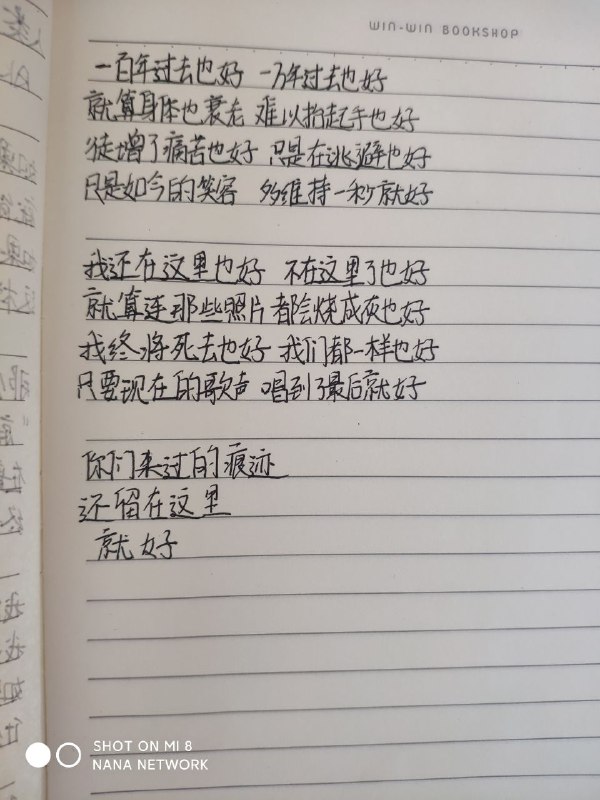 WIN-WIN BOOKSHOP
一百年过去也好 一万年过去也好
就算身体也衰老 难以抬起手也好
徒增了痛苦也好 只是在逃避也好
只是如今的笑容 多维持一秒就好
我还在这里也好 不在这里了也好
就算连那些照片都会烧成灰也好
我终将死去也好 我们都一样也好
只要现在的歌声 唱到了最后就好
你们来过的痕迹
还留在这里
就好
SHOT ON MI 8
NANA NETWORK